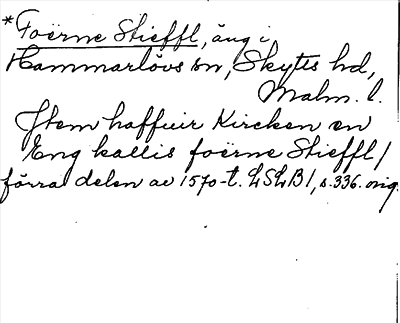 *Foërne Stieffl, äng i
Hammarlövs sn, Skytts hd,
Malm. l.
Jtem haffuir Kircken en
Eng kallis foërne Stieffl/
förra delen av 1570-t. LSLB1, s. 336. orig.